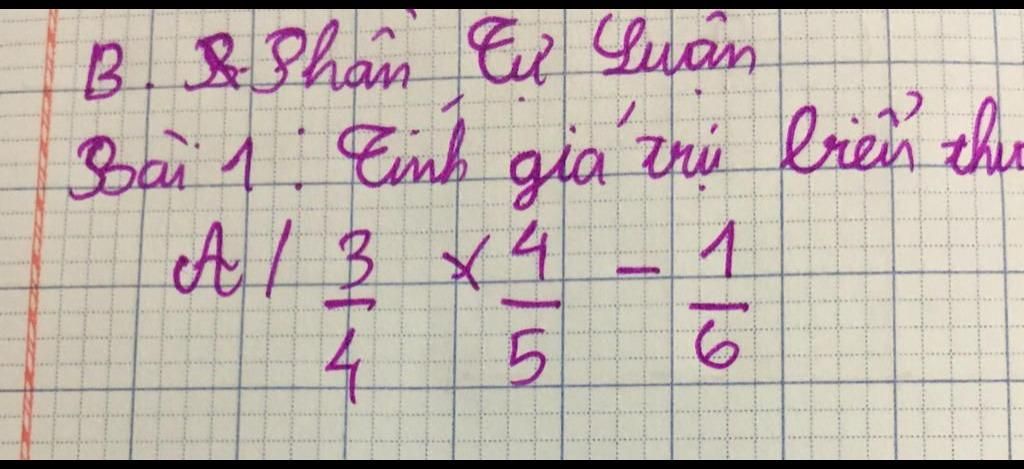 B. Phần Tự Luận
Bài 1: Tính giá trị biển thư
A/ 3/4 × 4/5 - 1/6